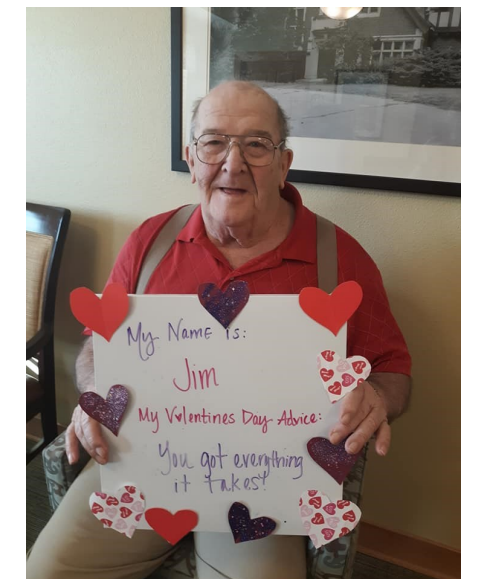 My Name is:
Jim
My Valentines Day Advice:
You got everything
it takes!